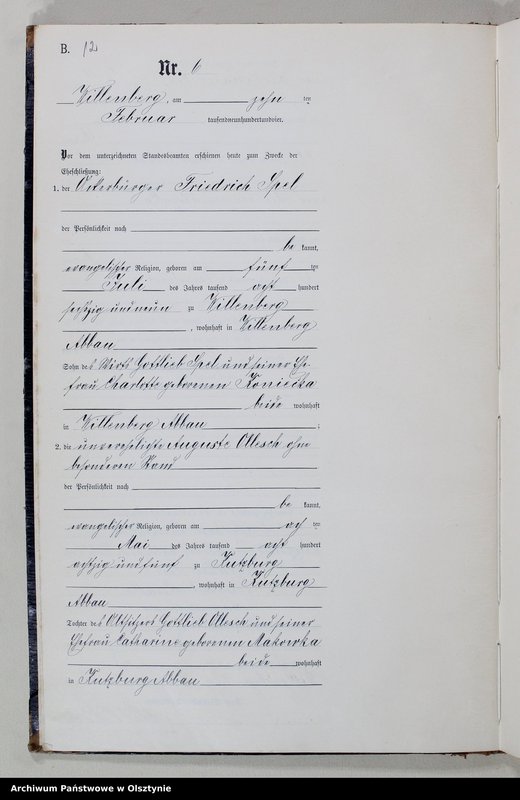 B. 12
Nr. 6
Willenberg, am zehn ten
Februar tausendneunhundertundvier.
Vor dem unterzeichneten Standesbeamten erschienen heute zum Zwecke der
Eheschließung:
1. der Ackerbürger Friedrich Spel
der Persönlichkeit nach
be kannt,
evangelischer Religion, geboren am fünf ten
Juli des Jahres tausend acht hundert
sechzig und neun zu Willenberg
, wohnhaft in Willenberg
Abbau
Sohn des Wirts Gottlieb Spel und seiner Ehe-
frau Charlotte geborenen Koniecka
beide wohnhaft
in Willenberg Abbau ;
2. die unverehelichte Auguste Ollesch ohne
besonderen Stand
der Persönlichkeit nach
be kannt,
evangelischer Religion, geboren am acht ten
Mai des Jahres tausend acht hundert
achtzig und fünf zu Kutzburg
, wohnhaft in Kutzburg
Abbau
Tochter des Altsitzers Gottlieb Ollesch und seiner
Ehefrau Catharine geborenen Makowka
beide wohnhaft
in Kutzburg Abbau
Archiwum Państwowe w Olsztynie